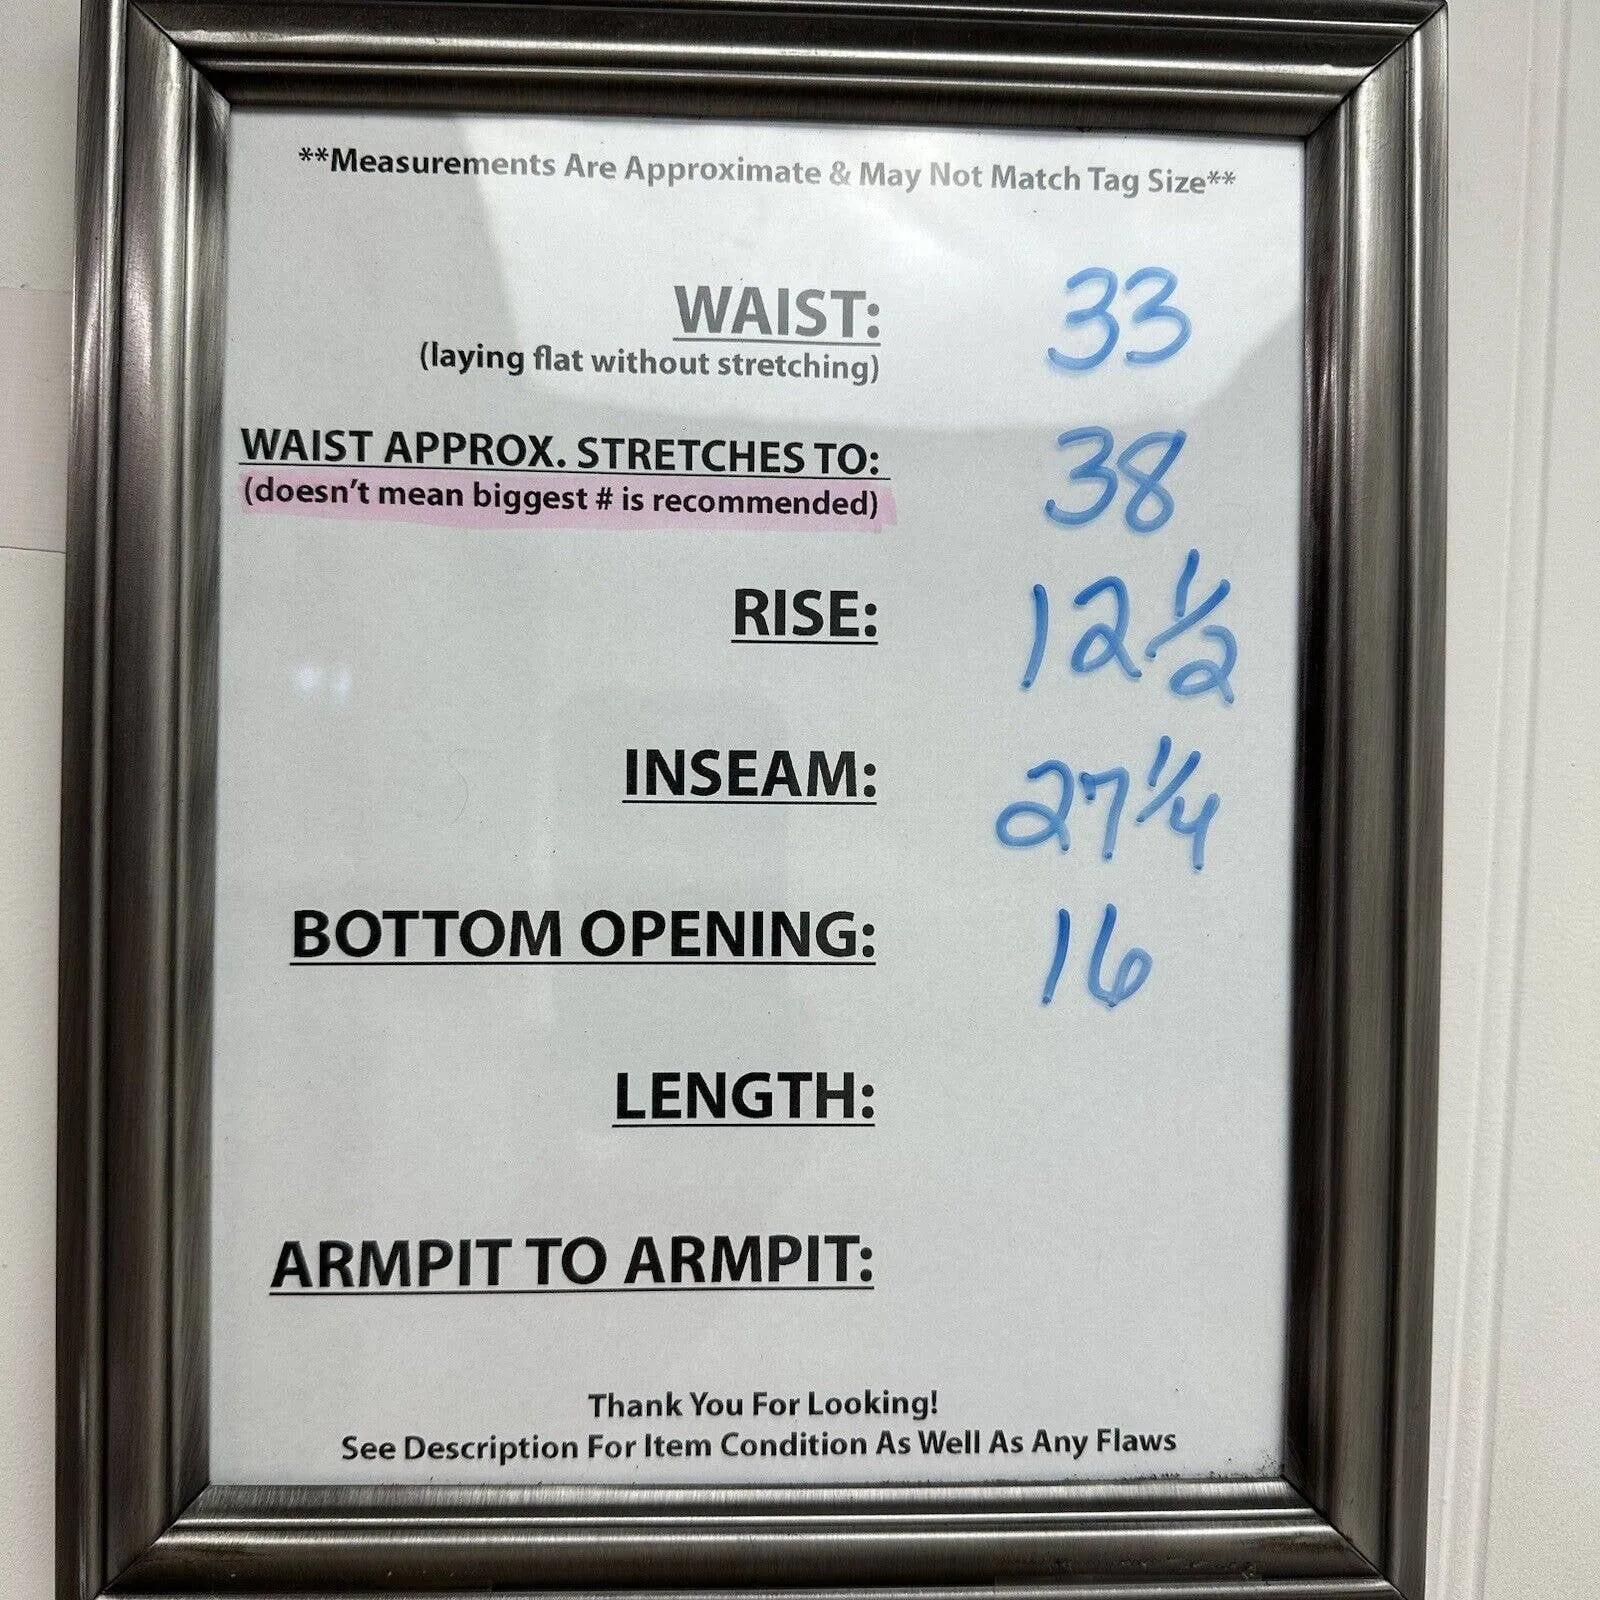 **Measurements Are Approximate & May Not Match Tag Size**
WAIST: 33
(laying flat without stretching)
WAIST APPROX. STRETCHES TO: 38
(doesn't mean biggest # is recommended)
RISE: 12 1/2
INSEAM: 27 1/4
BOTTOM OPENING: 16
LENGTH:
ARMPIT TO ARMPIT:
Thank You For Looking!
See Description For Item Condition As Well As Any Flaws